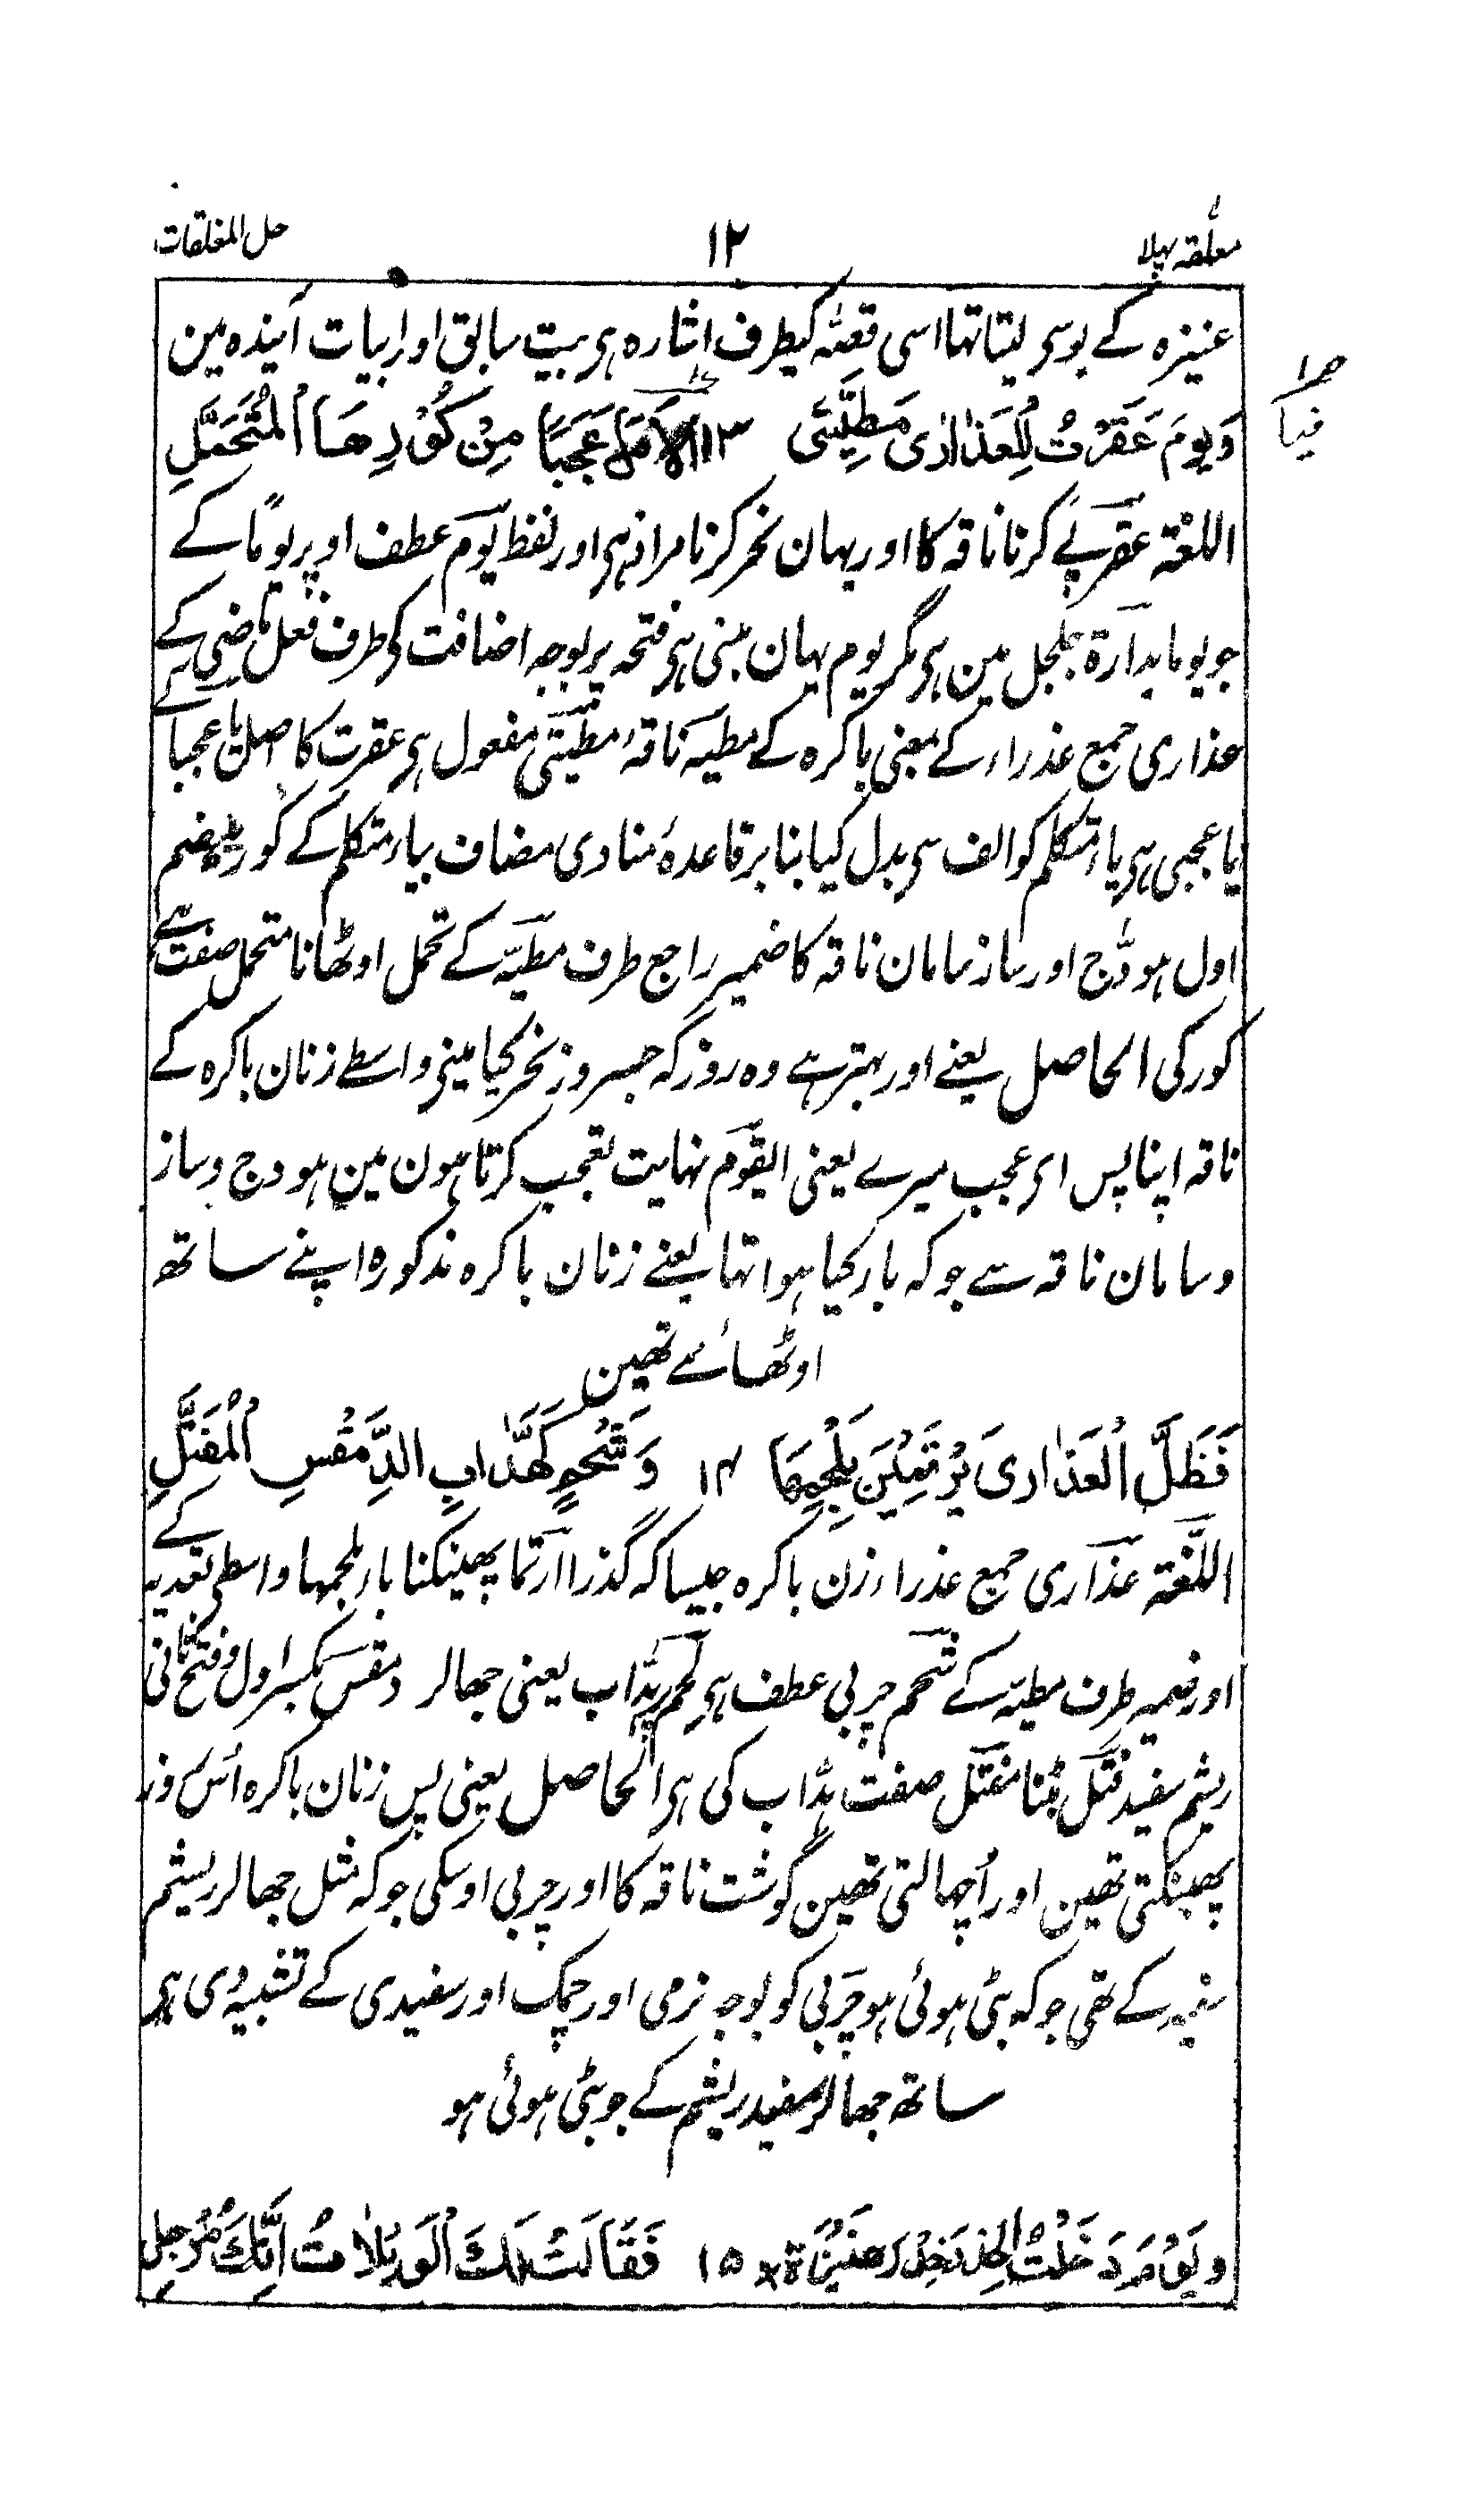 معلقہ پہلا ۱۲ حل المغلقات
عنیزہ کے بوسے لیتا تھا اسی قصّہ کیطرف اشارہ ہی بیت سابق اور ابیات آیندہ مین
وَیومَ عَقَرْتُ لِلْعَذَارٰی مَطِیَّتِی ۱۳ عَجَبًا مِنْ کُوْرِهَا الْمُتَحَمَّلِ
فیا
اللغۃ عقر پے کرنا ناقہ کا اور یہان نحر کرنا مراد ہی اور لفظ یوم عطف اوپر یومًا کے
جو یوما بدارۃ جلجل مین ہی مگر یوم یہان مبنی ہی فتحہ پر بوجہ اضافت کی طرف فعل ماضی کے
عذاری جمع عذراء کے معنی باکرہ کے مطیہ ناقہ مطیّتی مفعول ہی عقرت کا اصل یا عجبا کے
یا عجبی ہی یاء متکلم کو الف سی بدل کیا بنا بر قاعدۂ منادی مضاف بیاء متکلم کے کور بضم
اول ہودَج اور ساز سامان ناقہ کا ضمیر راجع طرف مطیّہ کے تحمل اوٹھانا متحمل صفت ہے
کور کی الحاصل یعنے اور بہتر ہے وہ روز کہ جسروز نحر کیا مینی واسطے زنان باکرہ کے
ناقہ اپنا پس ای عجب میرے یعنی ایقوم نہایت تعجب کرتا ہون مین ہودج وساز
وسامان ناقہ سے جو کہ بار کیا ہوا تھا یعنے زنان باکرہ مذکورہ اپنے ساتھ
اوٹھائے تھین
فَظَلَّ الْعَذَارٰی یَرْتَمِیْنَ بِلَحْمِهَا ۱۴ وَشَحْمٍ کَهُدَّابِ الدِّمَقْسِ الْمُفَتَّلِ
اللّغۃ عذاری جمع عذراء زن باکرہ جیسا کہ گذرا ارتما پھینکنا باء بلحمہا واسطی تعدیہ کے
اور ضمیر طرف مطیّہ کے شحم چربی عطف ہی لحم پر ہدّاب یعنی جھالر دمقس بکسر اول وفتح ثانی
ریشم سفید فتل بٹنا مفتل صفت ہدّاب کی ہی الحاصل یعنی پس زنان باکرہ اُس روز
پھینکتی تھین اور اُچھالتی تھین گوشت ناقہ کا اور چربی اوسکی جو کہ مثل جھالر ریشم
سفید کے تھی جو کہ بٹی ہوئی ہو چربی کو بوجہ نرمی اور چمک اور سفیدی کے تشبیہ دی ہی
ساتھ جھالر سفید ریشم کے جو بٹی ہوئی ہو
ویَوْمَ دَخَلْتُ الْخِدْرَ خِدْرَ عُنَیْزَةٍ ۱۵ فَقَالَتْ لَكَ الْوَیْلَاتُ اِنَّكَ مُرْجِلِ